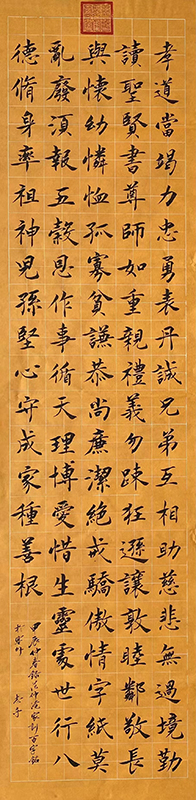 孝道當竭力忠勇表丹誠兄弟互相助慈悲無過境勤
讀聖賢書尊師如重親禮義勿踈狂遜讓敦睦鄰敬長
與懷幼憐恤孤寡貧謙恭尚廉潔絕戒驕傲情字紙莫
亂廢湏報五穀恩作事循天理博愛惜生靈處世行八
德脩身率祖神兒孫堅心守成家種善根
甲辰仲春錄范仲淹家訓百字銘